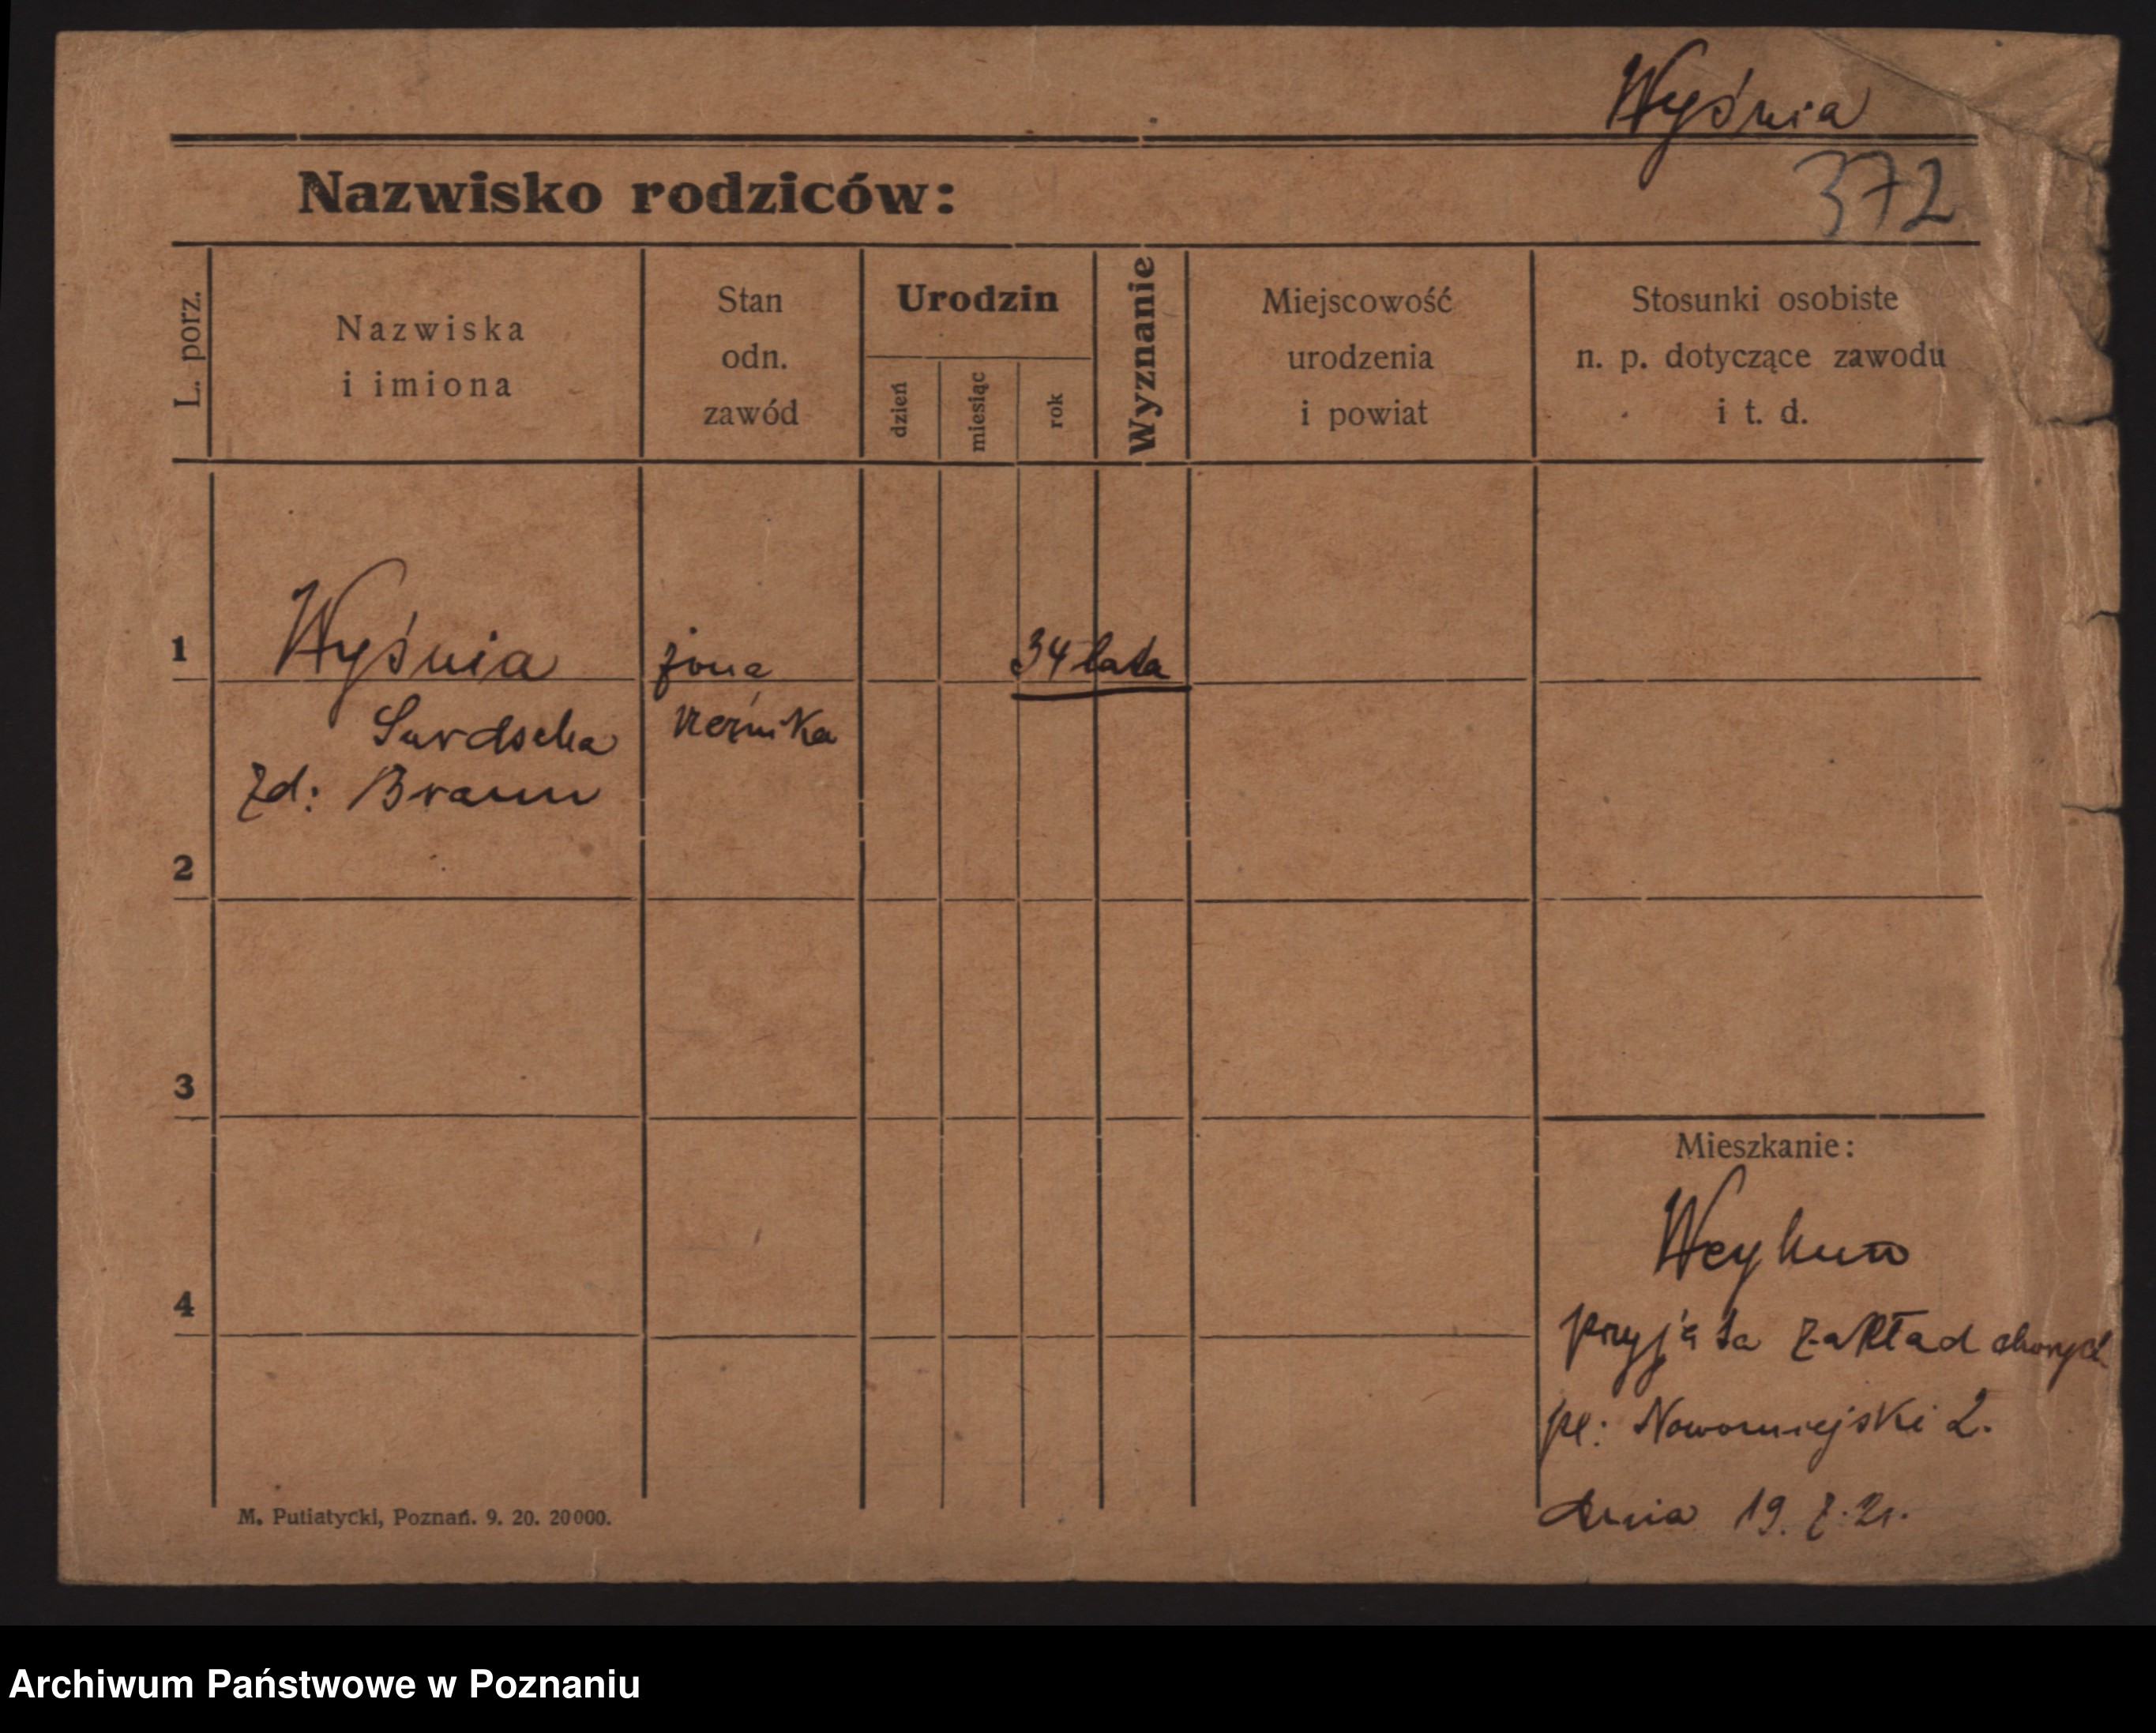 Wyśnia
372
Nazwisko rodziców:
L. porz.
Nazwiska
i imiona
Stan
odn.
zawód
Urodzin
dzień
miesiąc
rok
Wyznanie
Miejscowość
urodzenia
i powiat
Stosunki osobiste
n. p. dotyczące zawodu
i t. d.
1
Wyśnia
żona
34 lata
Zd: Braun
2
3
4
Mieszkanie:
przyjęta Zakład chorych
pl: Nowomiejski 2.
dnia 19. 7. 21.
M. Putiatycki, Poznań. 9. 20. 20000.
Archiwum Państwowe w Poznaniu